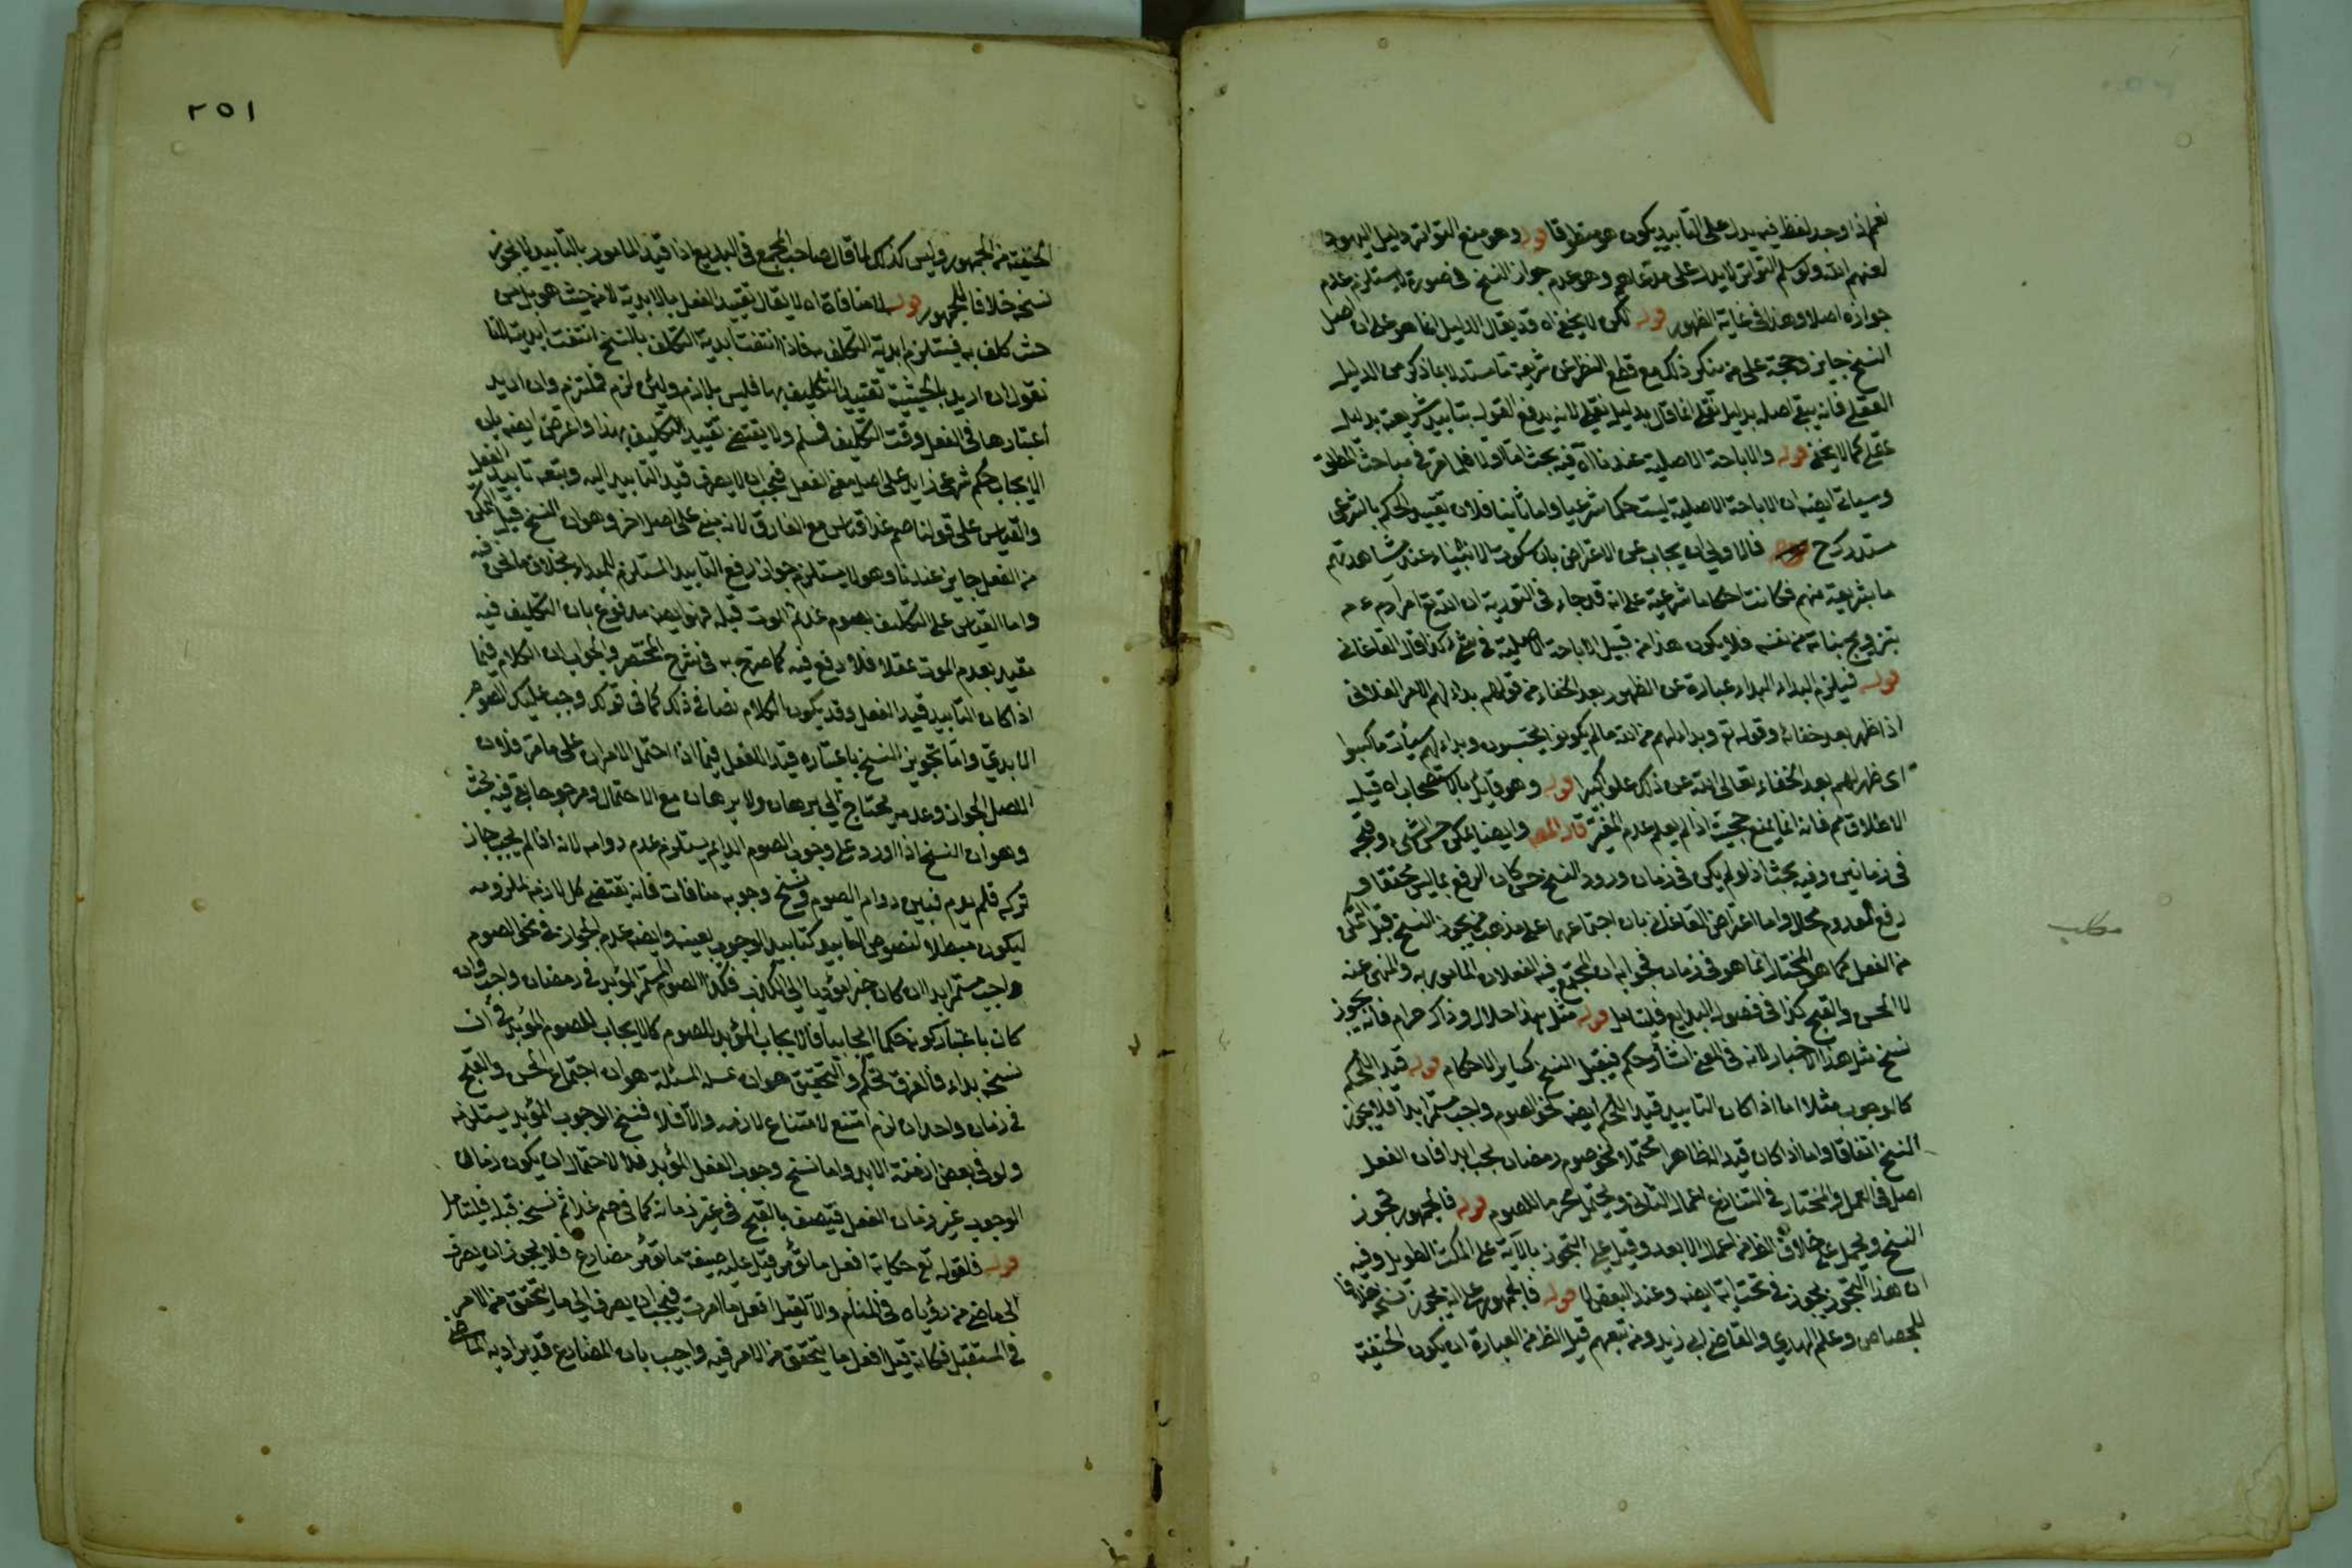 نعم اذا وجد لفظ فيه يدل على التأبيد يكون هو منظر قا قوله وهو منع التواتر دليل اليهود
لعنهم الله ولو سلم التواتر لا يدل على مدعاهم وهو عدم جواز النسخ في صورة لا يستلزم عدم
جوازه اصلا وهذا في غاية الظهور قوله لكن لا يخفى اه قد يقال الدليل انما هو على ان اصل
النسخ جايز وحجة على من ينكر ذلك مع قطع النظر عن شريعة ما مستدلا بما ذكر من الدليل
العقلي فانه يبقى اصله بدليل نقلي انما قال بدليل نقلي لانه يدفع القول بتأبيد شريعة بدليل
عقلي كما لا يخفى قوله والاباحة الاصلية عندنا اه فيه بحث اما اولا فلما تقرر في مباحث المطلق
وسيأتي ايضه ان الاباحة الاصلية ليست حكما شرعيا واما ثانيا فلان تقييد الحكم بالشرعي
مستدرك ح فالاولى ان يجاب عن الاعتراض بان سكوت الانبياء عند مشاهدتهم
ما بشريعة منهم فكانت احكاما شرعية على انه قد جاء في التورية ان الله تع امر ادم ع م
بتزويج بناته من نفسه فلا يكون هذا من قبيل الاباحة الاصلية في شئ كذا قال القاغاني
قوله فيلزم البداء البداء عبارة عن الظهور بعد الخفاء من قولهم بدا لهم الامر الفلاني
اذا ظهر بعد خفائه وقوله تع وبدا لهم من الله مالم يكونوا يحتسبون وبدا لهم سيئات ما كسبوا
اى ظهر لهم بعد الخفاء تعالى الله عن ذلك علوا كبيرا قوله وهو قايل بالاستصحاب اه قيل
الاطلاق مم فانه انما يمنع حجيته اذا لم يعلم عدم المغير قال المص وايضا يمكن حسن الشئ وقبحه
في زمانين وفيه بحث اذ لو لم يكن في زمان ورود النسخ حسن كان الرفع بما ليس محققا و
رفع المعدوم محال واما اعتراض القاغاني بان اجتماعهما على مذهب من يجوز النسخ قبل التمكن
من الفعل كما هو المختار انما هو في زمان فجوابه ان المجتمع فيه الفعلان المامور به والمنهى عنه
لا الحسن والقبح كذا في فصول البدايع فليتأمل قوله مثل هذا حلال وذاك حرام فانه يجوز
نسخ مثل هذا الاخبار لانه في المعنى انشاء حكم فيقبل النسخ كساير الاحكام قوله قيد الحكم
كالوجوب مثلا اما اذا كان التابيد قيد الحكم ايضه نحو الصوم واجب مستمر ابدا فلا يجوز
النسخ اتفاقا واما اذا كان قيد الظاهر محتملا نحو صوم رمضان يجب ابدا فان الفعل
اصل في العمل والمختار في التنازع اعمال الثاني ويحتمل محرما للصوم قوله فالجمهور يجوز
النسخ ويحمل على خلاف الظاهر اعمال الابعد وقيل على التجوز بالآية على المكث الطويل وفيه
ان هذا التجوز يجوز في تحتانية ايضه وعند البعض لا قوله فالجمهور على انه يجوز نسخه خلافا
للجصاص وعلم الهدى والقاضى ابى زيد ومن تبعهم قيل الظاهر من العبارة ان يكون الحنفية
مطلب
٢٥١
الحنفية من الجمهور وليس كذلك لما قال صاحب المجمع في البديع اذا قيد المامور بالتأبيد لا يجوز
نسخه خلافا للجمهور قوله لا منافاة اه لا يقال تقييد الفعل بالابدية لا من حيث هو بل من
حيث كلف به فيستلزم ابدية التكليف به فاذا انتفت ابدية التكليف بالنسخ انتفت ابديته لانا
نقول ان اريد بالحيثية تقييد التكليف بها فليس بلازم ولئن لزم فملتزم وان اريد
اعتبارها في الفعل وقت التكليف فمسلم ولا يقتضي تقييد التكليف بهذا واعترض ايضه بان
الايجاب حكم شرعي زايد على اصل معنى الفعل فيجب ان لا يصرف قيد التأبيد اليه وبتعه تابيد الفعل
والقياس على قولنا صم غدا قياس مع الفارق لانه مبني على اصل اخر وهو ان النسخ قبل التمكن
من الفعل جايز عندنا وهو لا يستلزم جواز رفع التابيد المستلزم للبداء بخلاف ما نحن فيه
واما القياس على التكليف بصوم غد ثم الموت قبله فهو ايضه مدفوع بان التكليف فيه
مقيد بعدم الموت عقلا فلا رفع فيه كما صرح به في شرح المختصر والجواب ان الكلام فيما
اذا كان التابيد قيد الفعل وقد يكون الكلام نصا في ذلك كما في قولك وجب عليك الصوم
الابدى واما تجويز النسخ باعتباره قيد الفعل فيما اذا احتمل الامران على ما مر فلان
الاصل الجواز وعدمه يحتاج الى برهان ولا برهان مع الاحتمال ومرجوحا بقى فيه بحث
وهو ان النسخ اذا ورد على وجوب الصوم الدايم يستلزم عدم دوامه لانه اذا لم يجب جاز
تركه فلم يدم فبين دوام الصوم ونسخ وجوبه منافات فانه يقتضى كل لازمة لملزومه
ليكون مبطلا لنصوص التابيد كتابيد الوجوب بعينه وايضه عدم الجواز في نحو الصوم
واجب مستمر ابدا ان كان خبرا يؤدى الى الكذب فكذا الصوم المستمر المؤبد في رمضان واجب وان
كان باعتبار كونه حكما ايجابيا فالايجاب المؤبد للصوم كالايجاب للصوم المؤبد في ان
نسخه بداء فالفرق تحكم والتحقيق هو ان عسله المسئلة هو ان اجتماع الحسن والقبح
في زمان واحد ان لزم امتنع لامتناع لازمه والا فلا فنسخ الوجوب المؤبد يستلزمه
ولو في بعض ازمنة الابد واما نسخ وجوب الفعل المؤبد فلا لاحتمال ان يكون زمان
الوجوب غير زمان الفعل فيتصف بالقبح في غير زمانه كما في صم غدا ثم نسخه قبله فليتأمل
قوله فلقوله تع حكاية افعل ما تؤمر قيل عليه صيغة ما تؤمر مضارع فلا يجوز ان يصرف
الى ما مضى من رؤياه في المنام والا لقيل افعل ما امرت فيجب ان يصرف الى ما يتحقق من الامر
في المستقبل فكانه قيل افعل ما يتحقق من الامر فيه واجيب بان المضارع قد يراد به الماضى